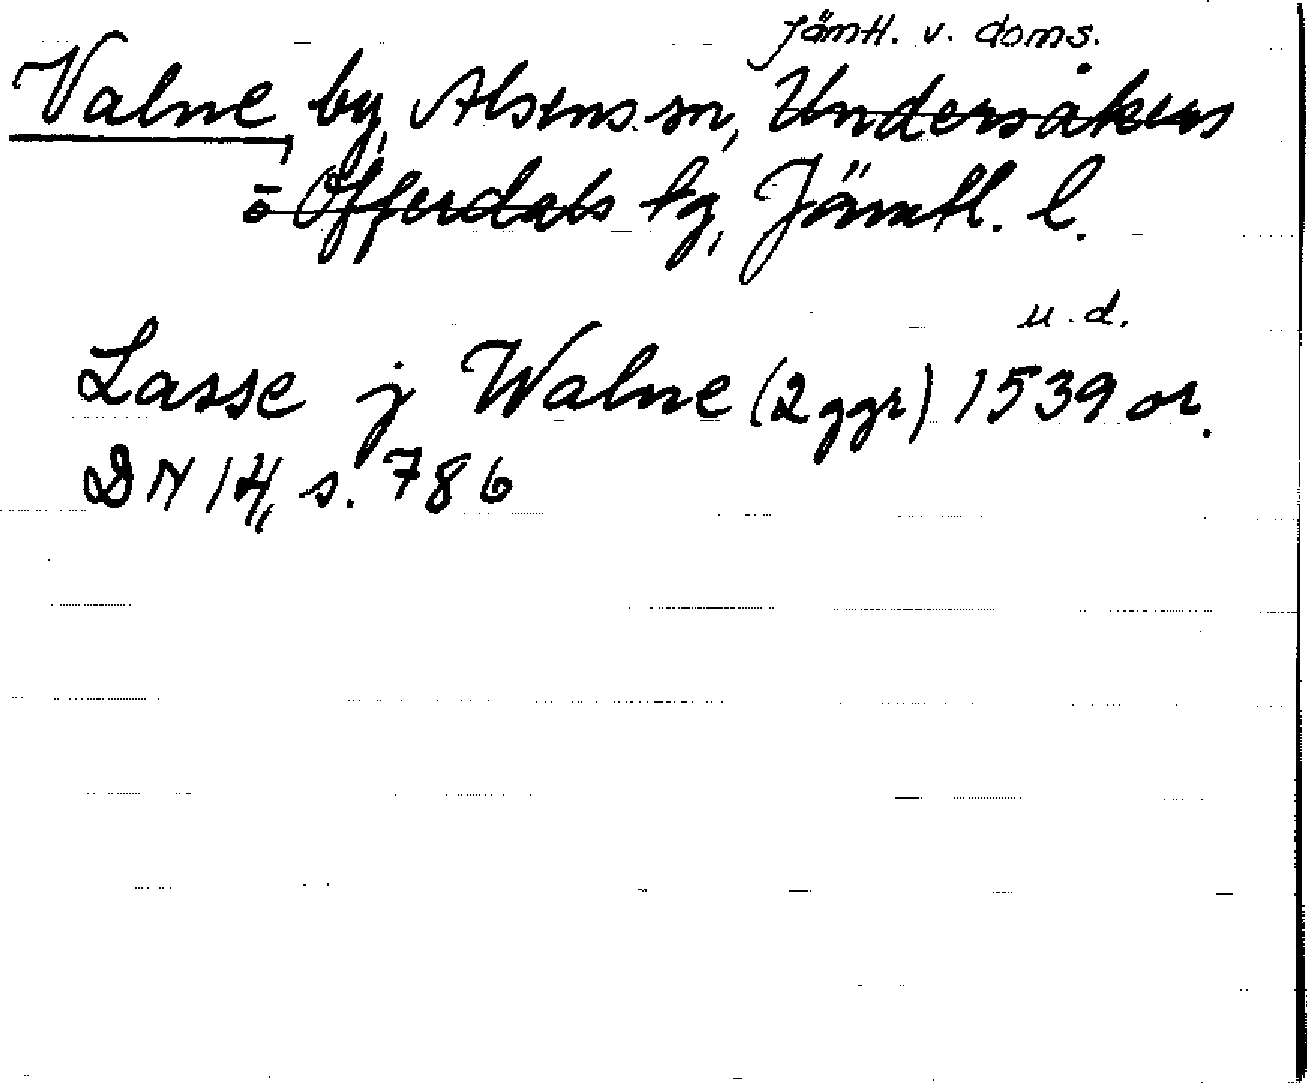 Jämtl. v. doms.
Valne, by, Alsens sn, Undersåkers
o Offerdals tg, Jämtl. l.
u.d.
Lasse j Walne (2 ggr) 1539 or.
DN 14, s. 786